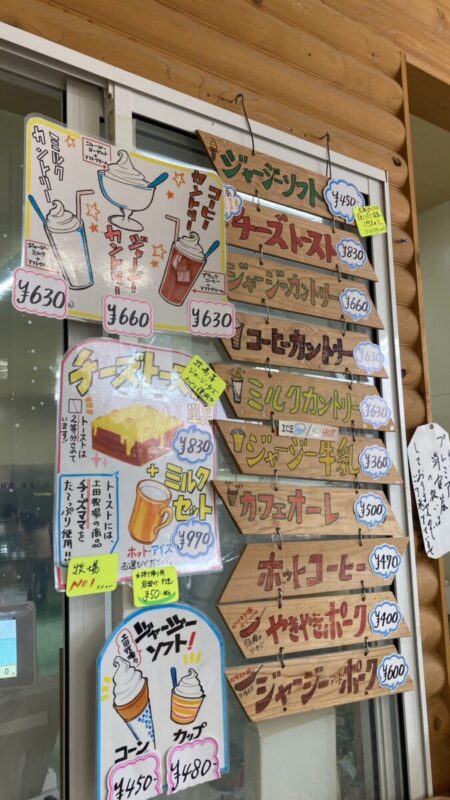 ミルクカントリー
ジャージーヨーグルト
ソフトクリーム
コーヒーカントリー
ジャージーカントリー
ジャージーミルク
ソフトクリーム
ブラックコーヒー
ソフトクリーム
¥630
¥660
¥630
チーズトースト
トーストは
2等分されています!
¥830
+ミルクセット
トーストには
土田牧場の商品
チーズママを
た〜っぷり使用!!
¥970
ホット・アイス
お選びください
牧場
No1
¥50
土田牧場の
ジャージーソフト!
コーン
カップ
¥450
¥480
ジャージーソフト
¥450
チーズトースト
¥830
ジャージーカントリー
¥660
コーヒーカントリー
¥630
ミルクカントリー
¥630
ICE
HOT
ジャージー牛乳
¥360
カフェオーレ
¥500
ホットコーヒー
¥470
やきやきポーク
¥400
ジャージーアンドポーク
¥600